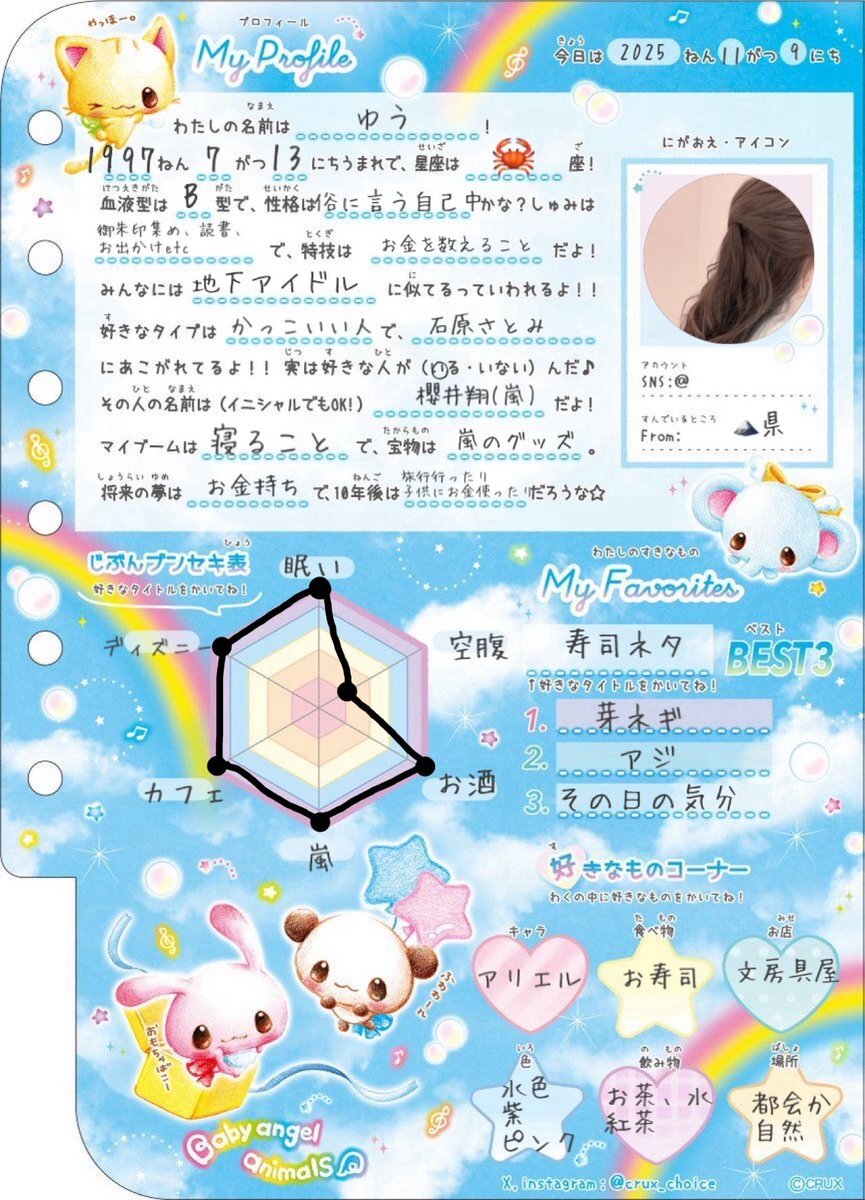 やっほー。
プロフィール
My Profile
きょう
今日は 2025 ねん 11 がつ 9 にち
なまえ
わたしの名前は ゆう !
せいざ ざ
1997 ねん 7 がつ 13 にちうまれで、星座は 🦀 座!
けつえきがた がた せいかく
血液型は B 型で、性格は俗に言う自己中かな?しゅみは
御朱印集め、読書、
とくぎ
お出かけetc で、特技は お金を数えること だよ!
に
みんなには 地下アイドル に似てるっていわれるよ!!
す
好きなタイプは かっこいい人 で、 石原さとみ
じつ す ひと
にあこがれてるよ!! 実は好きな人が (いる・いない) んだ♪
ひと なまえ
その人の名前は (イニシャルでもOK!) 櫻井翔(嵐) だよ!
たからもの
マイブームは 寝ること で、宝物は 嵐のグッズ 。
しょうらい ゆめ ねんご
旅行行ったり
将来の夢は お金持ち で、10年後は 子供にお金使ったり だろうな☆
にがおえ・アイコン
アカウント
SNS:@
すんでいるところ
From: 🗻県
ひょう
じぶんブンセキ表
好きなタイトルをかいてね!
眠い
空腹
お酒
嵐
カフェ
ディズニー
わたしのすきなもの
My Favorites
寿司ネタ
ベスト
BEST3
↑好きなタイトルをかいてね!
1. 芽ネギ
2. アジ
3. その日の気分
す
好きなものコーナー
わくの中に好きなものをかいてね!
キャラ
アリエル
た もの
食べ物
お寿司
みせ
お店
文房具屋
いろ
色
水色
紫
ピンク
の もの
飲み物
お茶、水
紅茶
ばしょ
場所
都会か
自然
おもちゃばこー
Baby angel
animals
X, instagram : @crux_choice
©CRUX